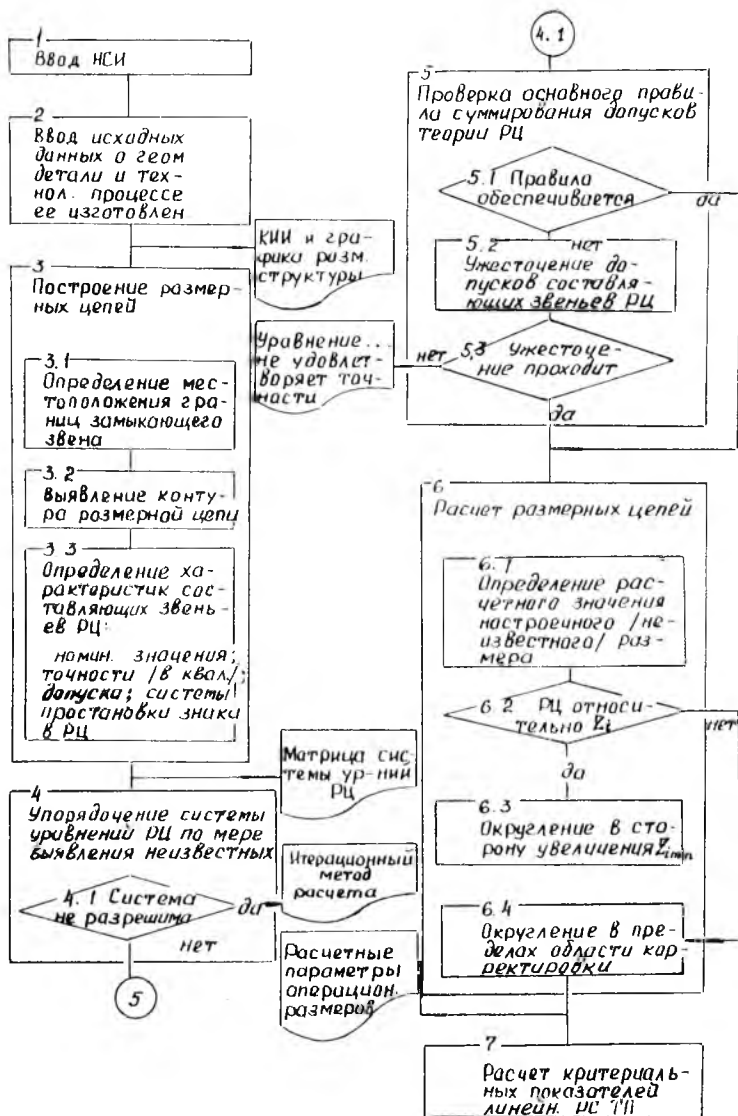 1
Ввод НСИ
2
Ввод исхадных
данных о геом
детали и тех-
нол. процессе
ее изготовлен
КИИ и гра-
фика разм.
структуры
3
Построение размер-
ных цепей
3.1
Определение мес-
тоположения гра-
ниц замыкающего
звена
3.2
Выявление конту-
ра розмерной цепи
3.3
Определение ха-
рактеристик сос-
тавляющих звень-
ев РЦ:
номин. значения;
точности /в квал./;
допуска; системы
простановки знаки
в РЦ
Матрица сис-
темы ур-ний
РЦ
4
Упорядочение системы
уравнений РЦ по мере
выявления неизвестных
4.1 Система
не разрешима
да
нет
5
Итерационный
метод
расчета
Расчетные
параметры
операцион.
размеров
4.1
5
Проверка основного прави-
ла суммирования допусков
теории РЦ
5.1 Правила
обеспечивается
да
5.2
нет
Ужесточение до-
пусков составля-
ющих звеньев РЦ
Уравнение...
не удовлет-
воряет точ-
ности
нет
5.3 Ужесточе-
ение проходит
да
6
Расчет размерных цепей
6.1
Определение рас-
четного значения
настроечного /не-
известного/ раз-
мера
6.2 РЦ относи-
тельно Zi
нет
да
6.3
Округление в сто-
рону увеличения Zimin
6.4
Округление в пре-
делах области кор-
ректировки
7
Расчет критериаль-
ных показателей
линейн. РС ТП